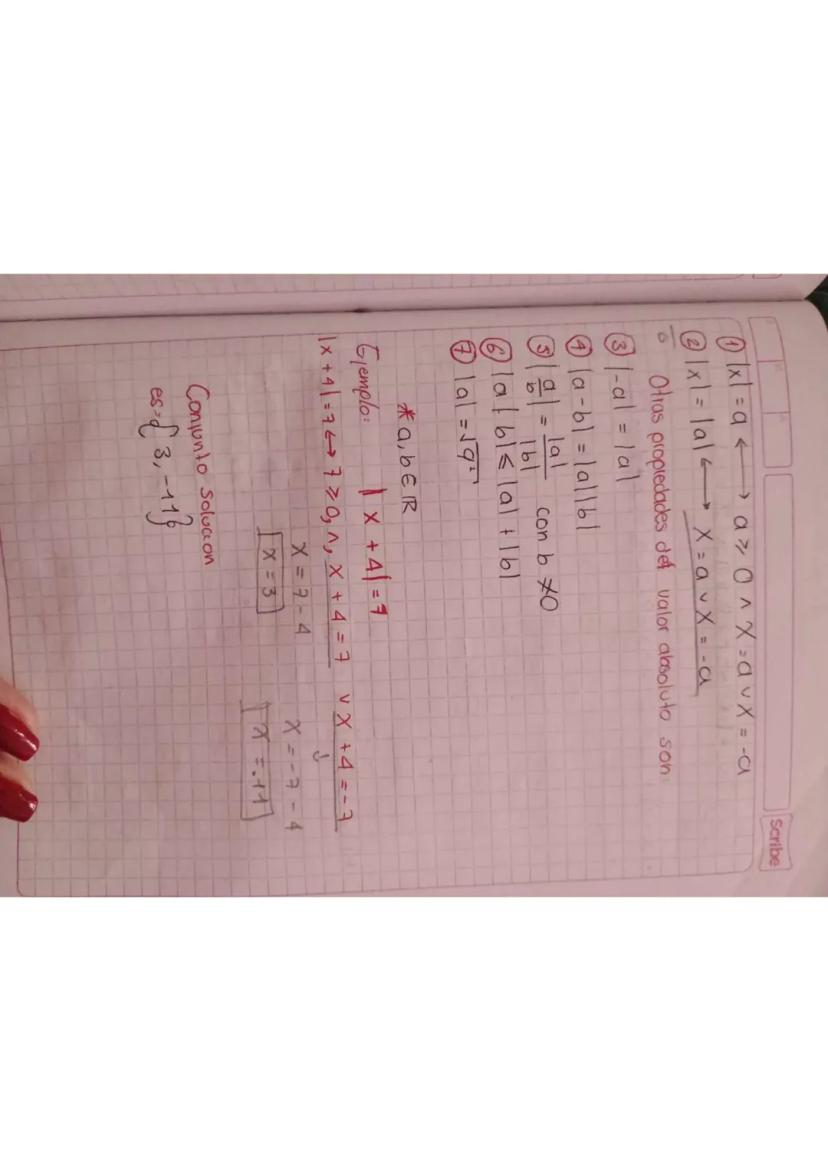 Scribe
① |x| = a ⟷ a ≥ 0 ∧ X = a ∨ X = -a
② |x| = |a| ⟷ X = a ∨ X = -a
Otras propiedades del valor absoluto son:
③ |-a| = |a|
④ |a-b| = |a||b|
⑤ |a/b| = |a|/|b| con b ≠ 0
⑥ |a + b| ≤ |a| + |b|
⑦ |a| = √a²
* a, b ∈ ℝ
Ejemplo: |x + 4| = 7
|x + 4| = 7 ⟷ 7 ≥ 0, ∧, x + 4 = 7 ∨ x + 4 = -7
x = 7 - 4 x = -7 - 4
x = 3 x = -11
Conjunto Solucion
es = { 3, -11 }